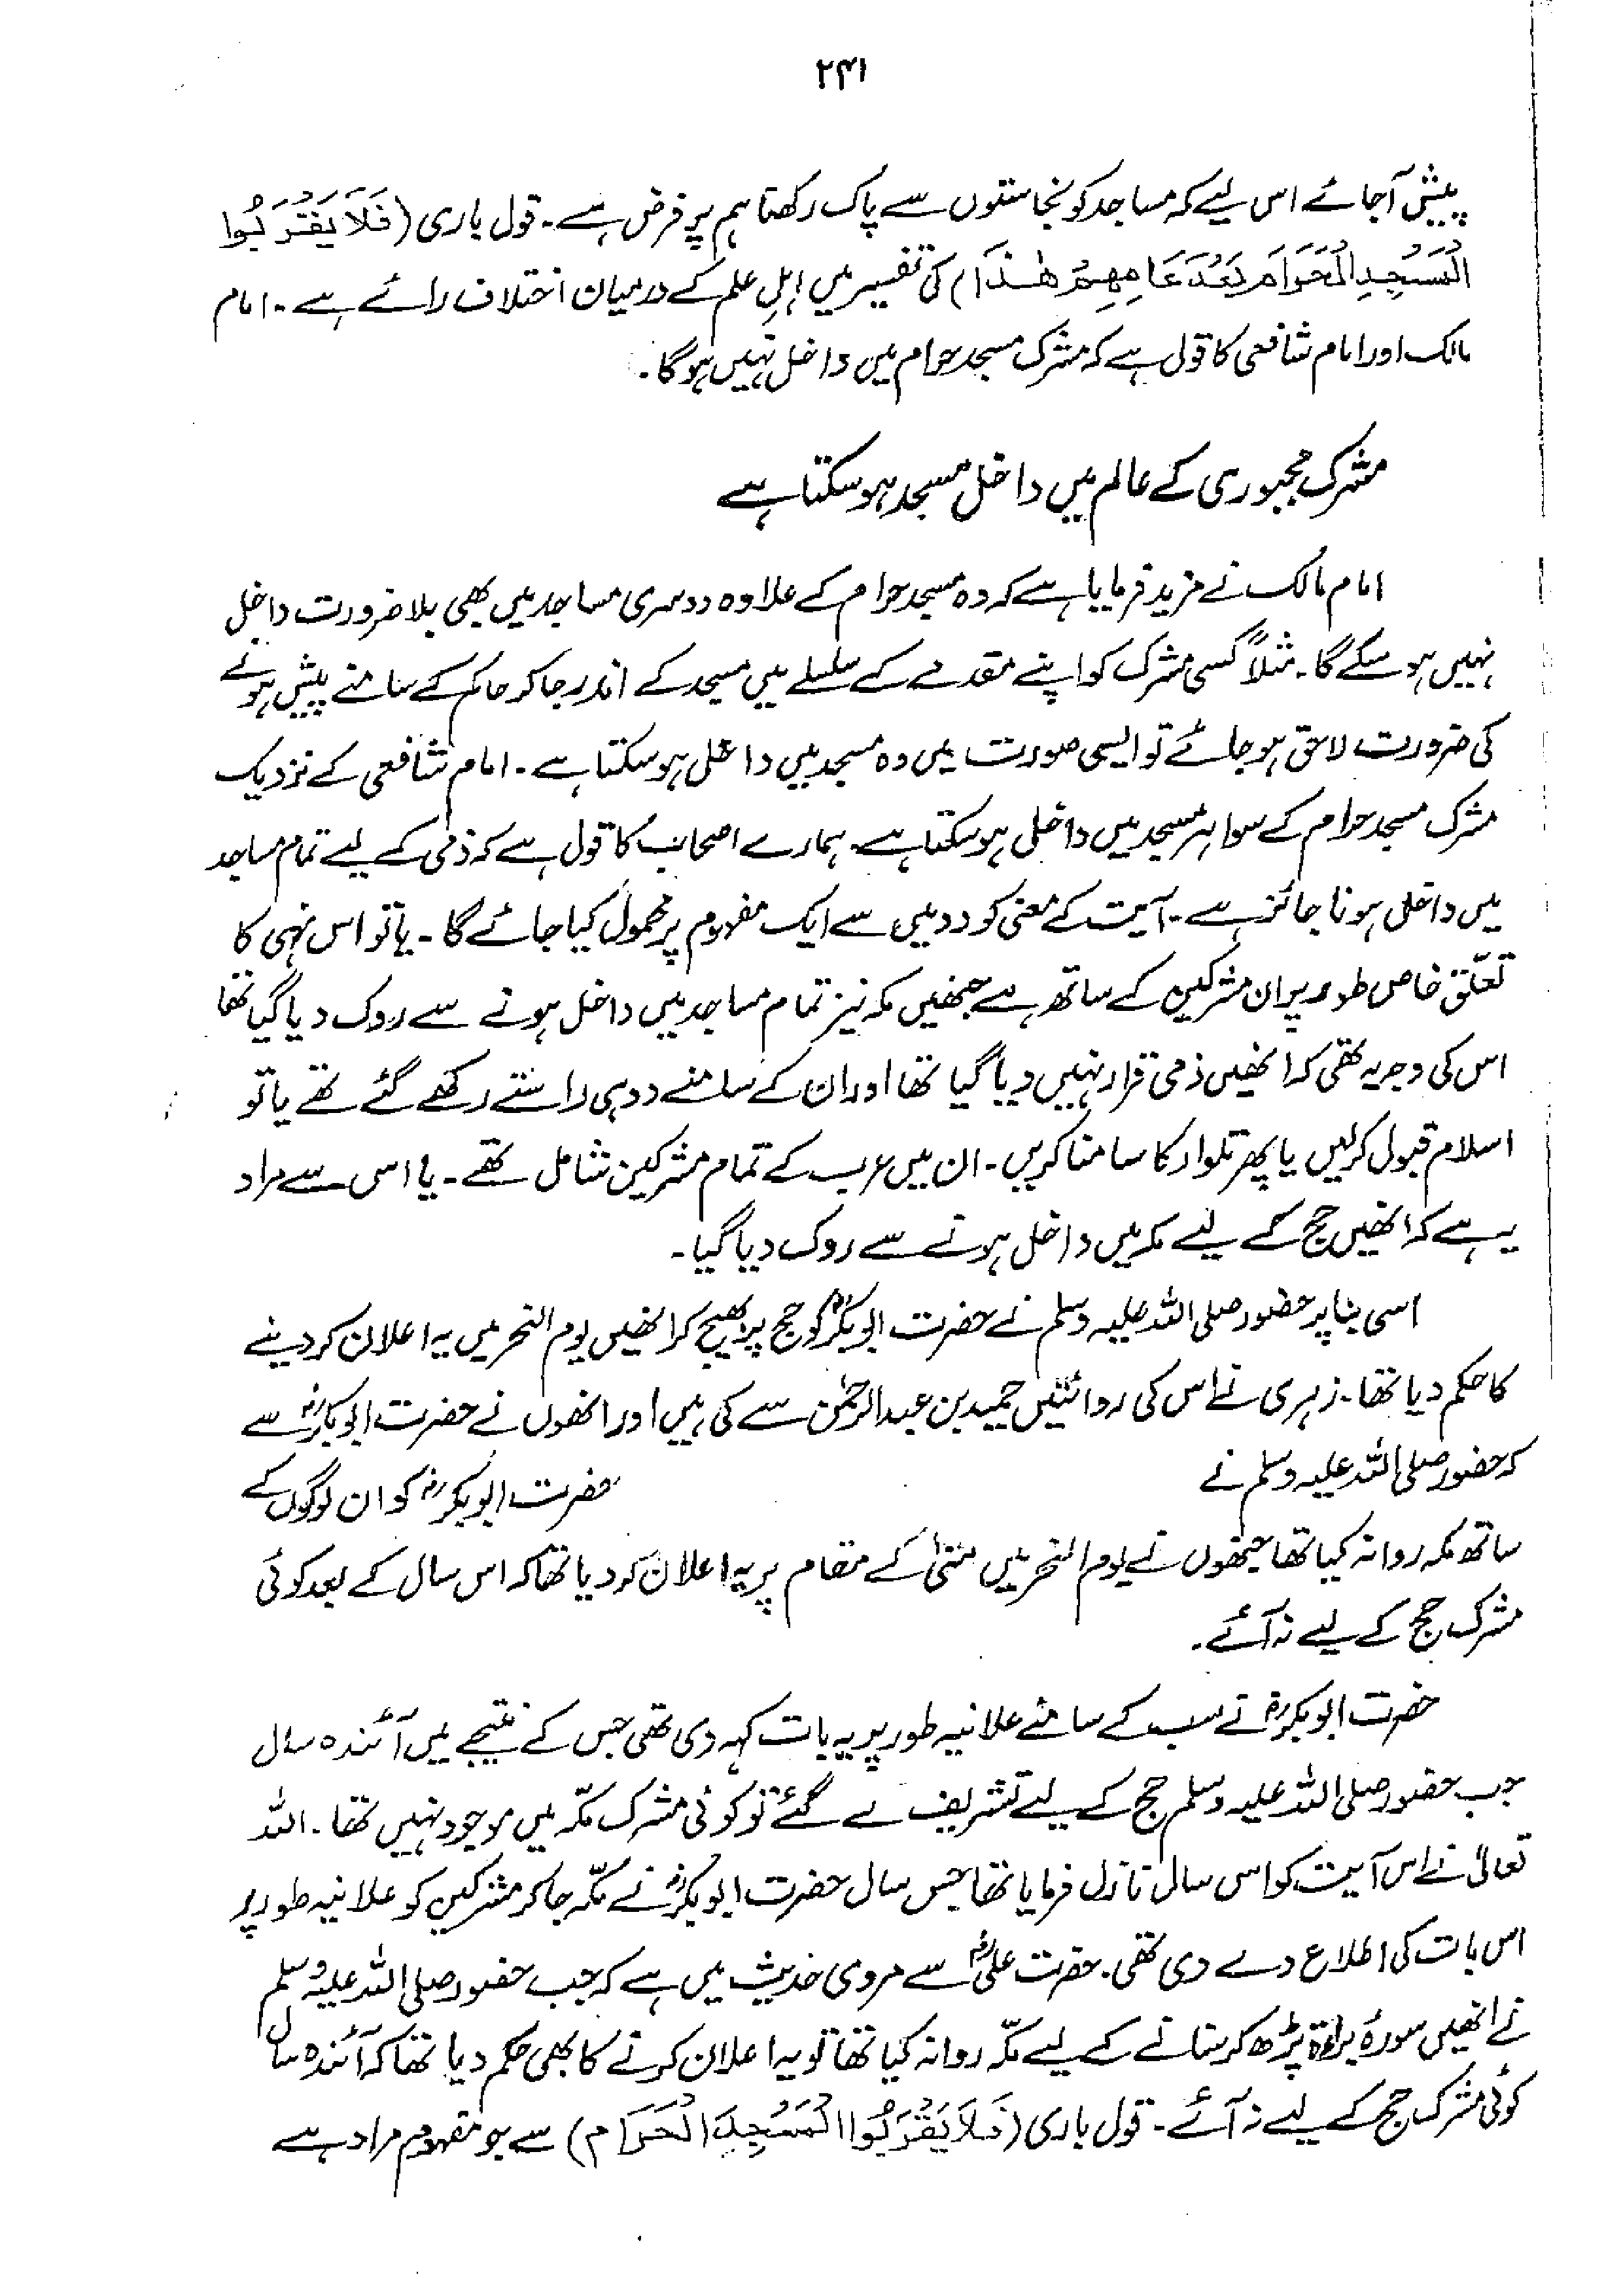 ۲۴۱
پیش آجائے اس لیے کہ مساجد کو نجاستوں سے پاک رکھنا ہم پر فرض ہے۔ قول باری (فَلَا يَقْرَبُوا
الْمَسْجِدِ الْحَرَامَ بَعْدَ عَامِهِمْ هٰذَا) کی تفسیر میں اہلِ علم کے درمیان اختلاف رائے ہے۔ امام
مالک اور امام شافعی کا قول ہے کہ مشرک مسجد حرام میں داخل نہیں ہوگا۔
مشرک مجبوری کے عالم میں داخل مسجد ہو سکتا ہے
امام مالک نے مزید فرمایا ہے کہ وہ مسجد حرام کے علاوہ دوسری مساجد میں بھی بلا ضرورت داخل
نہیں ہو سکے گا۔ مثلاً کسی مشرک کو اپنے مقدمے کے سلسلے میں مسجد کے اندر جا کر حاکم کے سامنے پیش ہونے
کی ضرورت لاحق ہو جائے تو ایسی صورت میں وہ مسجد میں داخل ہو سکتا ہے۔ امام شافعی کے نزدیک
مشرک مسجد حرام کے سوا ہر مسجد میں داخل ہو سکتا ہے۔ ہمارے اصحاب کا قول ہے کہ ذمی کے لیے تمام مساجد
میں داخل ہونا جائز ہے۔ آیت کے معنی کو دو میں سے ایک مفہوم پر محمول کیا جائے گا۔ یا تو اس نہی کا
تعلّق خاص طور پر ان مشرکین کے ساتھ ہے جنھیں مکہ نیز تمام مساجد میں داخل ہونے سے روک دیا گیا تھا
اس کی وجہ یہ تھی کہ انھیں ذمی قرار نہیں دیا گیا تھا اور ان کے سامنے دو ہی راستے رکھے گئے تھے یا تو
اسلام قبول کرلیں یا پھر تلوار کا سامنا کریں۔ ان میں عرب کے تمام مشرکین شامل تھے۔ یا اس سے مراد
یہ ہے کہ انھیں حج کے لیے مکہ میں داخل ہونے سے روک دیا گیا۔
اسی بنا پر حضور صلی اللہ علیہ وسلم نے حضرت ابوبکرؓ کو حج پر بھیج کر انھیں یوم النحر میں یہ اعلان کر دینے
کا حکم دیا تھا۔ زہری نے اس کی روائتیں حمید بن عبدالرحمٰن سے کی ہیں اور انھوں نے حضرت ابوبکرؓ سے
کہ حضور صلی اللہ علیہ وسلم نے حضرت ابوبکرؓ کو ان لوگوں کے
ساتھ مکہ روانہ کیا تھا جنھوں نے یوم النحر میں منیٰ کے مقام پر یہ اعلان کر دیا تھا کہ اس سال کے بعد کوئی
مشرک حج کے لیے نہ آئے۔
حضرت ابوبکرؓ نے سب کے سامنے علانیہ طور پر یہ بات کہہ دی تھی جس کے نتیجے میں آئندہ سال
جب حضور صلی اللہ علیہ وسلم حج کے لیے تشریف لے گئے تو کوئی مشرک مکّہ میں موجود نہیں تھا۔ اللہ
تعالیٰ نے اس آیت کو اس سال نازل فرمایا تھا جس سال حضرت ابوبکرؓ نے مکّہ جا کر مشرکین کو علانیہ طور پر
اس بات کی اطلاع دے دی تھی۔ حضرت علیؓ سے مروی حدیث میں ہے کہ جب حضور صلی اللہ علیہ وسلم
نے انھیں سورۂ براءۃ پڑھ کر سنانے کے لیے مکّہ روانہ کیا تھا تو یہ اعلان کرنے کا بھی حکم دیا تھا کہ آئندہ سال
کوئی مشرک حج کے لیے نہ آئے۔ قول باری (فَلَا يَقْرَبُوا الْمَسْجِدَ الْحَرَامَ) سے جو مفہوم مراد ہے